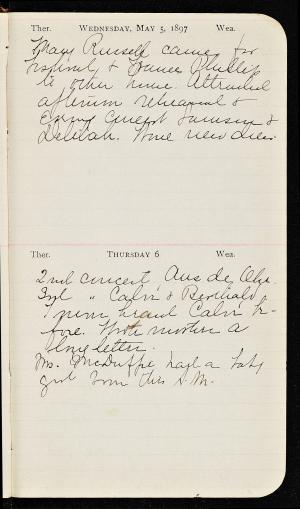 Ther. WEDNESDAY, MAY 5, 1897 Wea.
Mary Russell came for
Festival & Grace Phillips
to other home. Attended
afternoon rehearsal &
evening concert Samson &
Delilah. Wore new dress.
Ther. THURSDAY 6 Wea.
2nd concert, Aus der Ohe.
3rd " Calvé &
I never heard Calvé be-
fore. Wrote mother a
long letter.
Mrs. McDuffee had a baby
girl born this A.M.